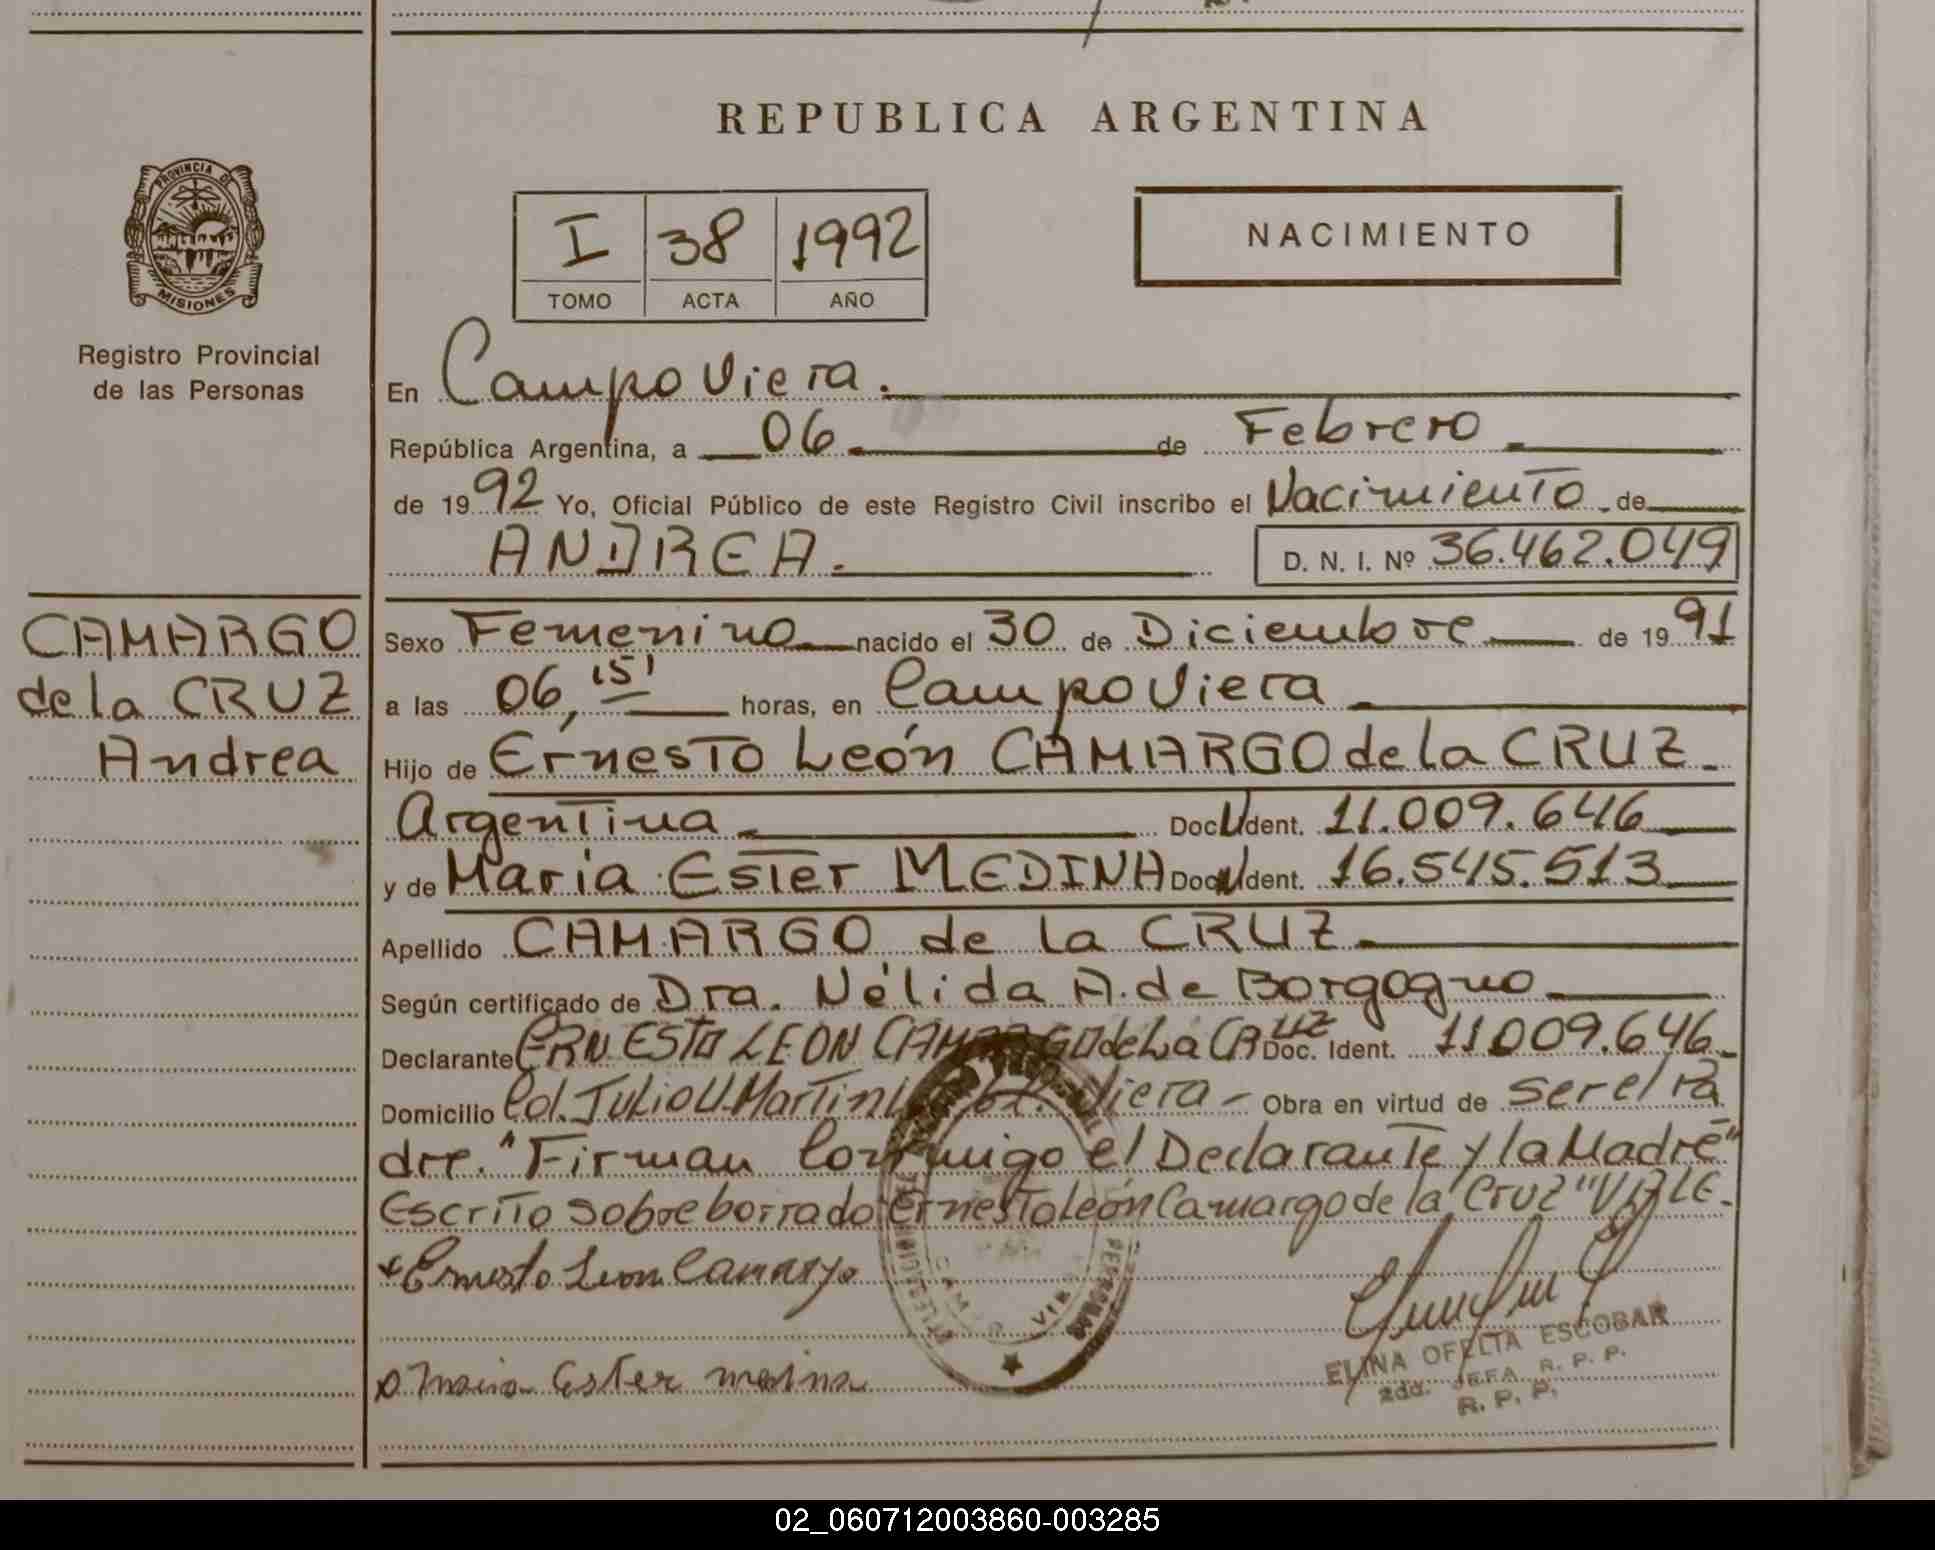 REPUBLICA ARGENTINA
PROVINCIA DE
MISIONES
Registro Provincial
de las Personas
I 38 1992
TOMO ACTA AÑO
NACIMIENTO
En Campo Viera.
República Argentina, a 06 de Febrero
de 1992 Yo, Oficial Público de este Registro Civil inscribo el Nacimiento de
ANDREA. D. N. I. Nº 36.462.049
CAMARGO
de la CRUZ
Andrea
Sexo Femenino nacido el 30 de Diciembre de 1991
a las 06,15' horas, en Campo Viera
Hijo de Ernesto León CAMARGO de la CRUZ
Argentina Doc. Ident. 11.009.646
y de María Ester MEDINA Doc. Ident. 16.545.513
Apellido CAMARGO de la CRUZ
Según certificado de Dra. Nélida A. de Borgogno
Declarante ERNESTO LEON CAMARGO de La CRUZ Doc. Ident. 11.009.646
Domicilio Col. Julio U. Martin Viera - Obra en virtud de ser el Pa
dre. "Firman Conmigo el Declarante y la Madre"
Escrito sobre borrado Ernesto León Camargo de la Cruz "VALE.
Ernesto Leon Camargo
Maria Ester medina
CAMPO VIERA
ELINA OFELIA ESCOBAR
2da. JEFA R. P. P.
R. P. P.
02_060712003860-003285